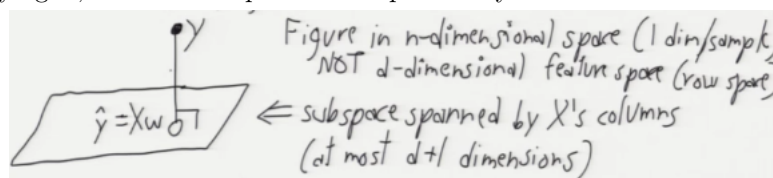 y
Figure in n-dimensional space (1 dim/sample,
NOT d-dimensional feature space (row space)
ŷ = Xw
⇐ subspace spanned by X's columns
(at most d+1 dimensions)